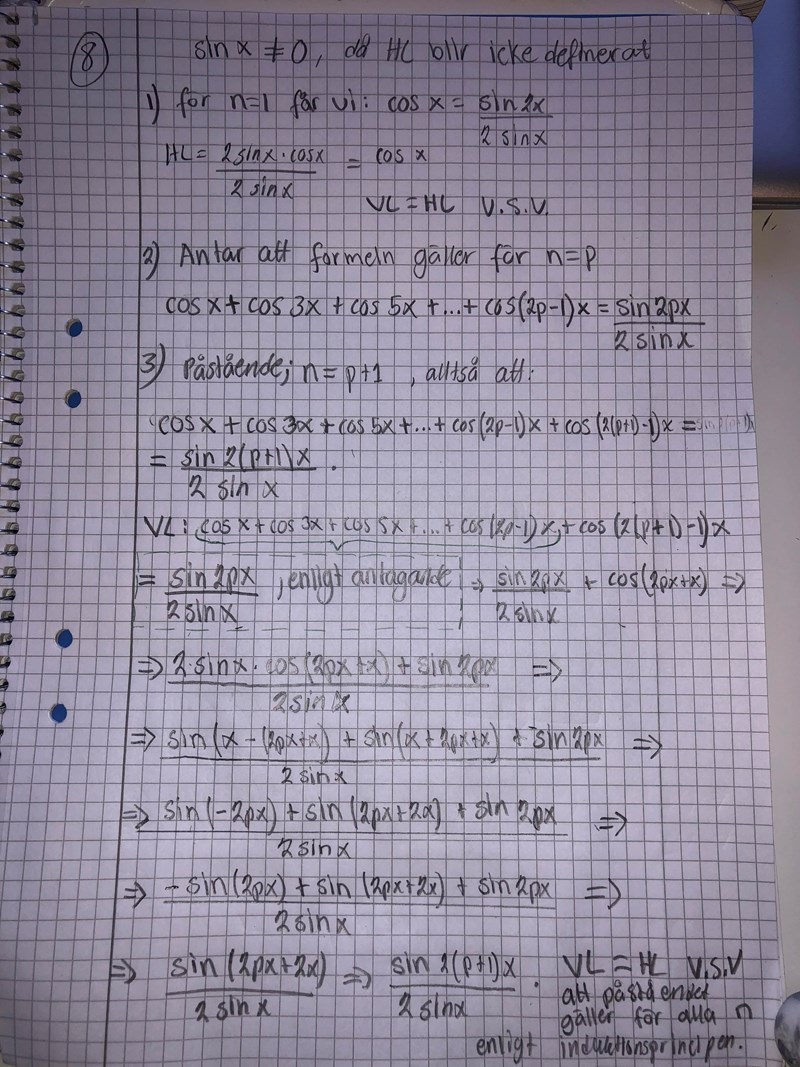 8 sin x ≠ 0, då HL blir icke definerat
1) för n=1 får vi: cos x = sin 2x / 2 sin x
HL = 2 sin x · cos x / 2 sin x = cos x
VL = HL V.S.V.
2) Antar att formeln gäller för n=p
cos x + cos 3x + cos 5x + ... + cos(2p-1)x = sin 2px / 2 sin x
3) Påstående; n = p+1, alltså att:
cos x + cos 3x + cos 5x + ... + cos(2p-1)x + cos(2(p+1)-1)x =
= sin 2(p+1)x / 2 sin x .
VL: cos x + cos 3x + cos 5x + ... + cos(2p-1)x + cos(2(p+1)-1)x
= sin 2px / 2 sin x , enligt antagande ⇒ sin 2px / 2 sin x + cos(2px+x) ⇒
⇒ 2·sin x · cos(2px+x) + sin 2px / 2 sin x ⇒
⇒ sin(x - (2px+x) + sin(x + 2px+x) + sin 2px / 2 sin x ⇒
⇒ sin(-2px) + sin(2px+2x) + sin 2px / 2 sin x ⇒
⇒ -sin(2px) + sin(2px+2x) + sin 2px / 2 sin x ⇒
⇒ sin(2px+2x) / 2 sin x ⇒ sin 2(p+1)x / 2 sin x . VL = HL V.S.V
att påståendet
gäller för alla n
enligt induktionsprincipen.